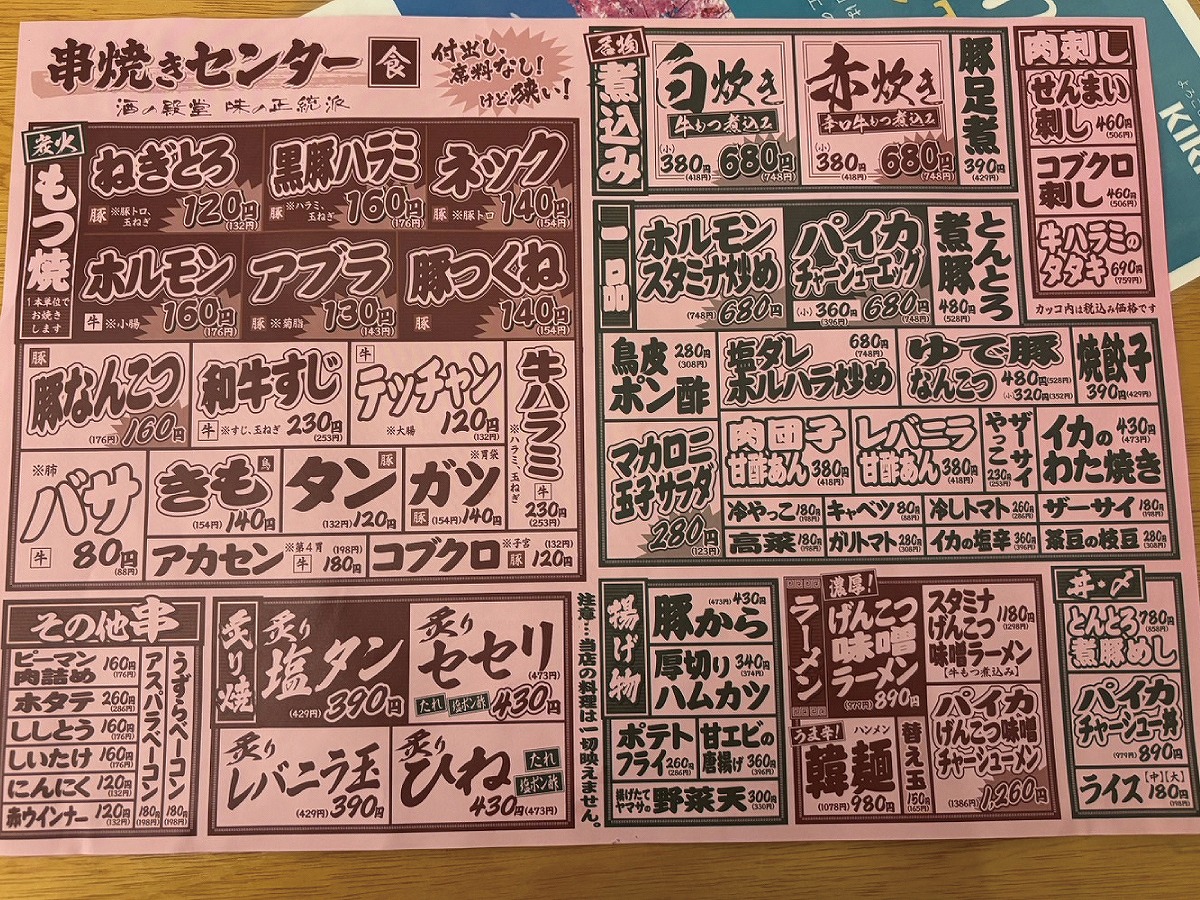 串焼きセンター 食
酒の殿堂 味の正統派
付出し、
席料なし!
けど狭い!
炭火
もつ焼
1本単位で
お焼き
します
ねぎとろ
豚 ※豚トロ、玉ねぎ 120円(132円)
黒豚ハラミ
豚 ※ハラミ、玉ねぎ 160円(176円)
ネック
豚 ※豚トロ 140円(154円)
ホルモン
牛 ※小腸 160円(176円)
アブラ
豚 ※菊脂 130円(143円)
豚つくね
豚 140円(154円)
豚
豚なんこつ
(176円) 160円
和牛すじ
牛 ※すじ、玉ねぎ 230円(253円)
牛
テッチャン
※大腸 120円(132円)
牛ハラミ
※ハラミ、玉ねぎ 牛
230円(253円)
※肺
バサ
牛 80円(88円)
きも 鳥
(154円) 140円
タン 豚
(132円) 120円
ガツ ※胃袋
豚 (154円) 140円
アカセン ※第4胃 牛 (198円) 180円
コブクロ ※子宮 豚 (132円) 120円
その他串
ピーマン肉詰め 160円(176円)
ホタテ 260円(286円)
ししとう 160円(176円)
しいたけ 160円(176円)
にんにく 120円(132円)
赤ウインナー 120円(132円)
アスパラベーコン 180円(198円)
うずらベーコン 180円(198円)
炙り焼
炙り
塩タン
(429円) 390円
炙り
セセリ
(473円)
たれ 塩ポン酢 430円
炙り
レバニラ玉
(429円) 390円
炙り
ひね
たれ
塩ポン酢
430円(473円)
注意…当店の料理は一切映えません。
名物
煮込み
白炊き
牛もつ煮込み
(小) 380円(418円) 680円(748円)
赤炊き
辛口牛もつ煮込み
(小) 380円(418円) 680円(748円)
豚足煮
390円(429円)
肉刺し
せんまい
刺し 460円(506円)
コブクロ
刺し 460円(506円)
牛ハラミの
タタキ 690円(759円)
カッコ内は税込み価格です
一品
ホルモン
スタミナ炒め
(748円) 680円
パイカ
チャーシューエッグ
(小) 360円(396円) 680円(748円)
とんとろ
煮豚
480円(528円)
鳥皮 280円(308円)
ポン酢
塩ダレ 680円(748円)
ホルハラ炒め
ゆで豚
なんこつ 480円(528円)
(小) 320円(352円)
焼餃子
390円(429円)
マカロニ
玉子サラダ
280円(123円)
肉団子
甘酢あん 380円(418円)
レバニラ
甘酢あん 380円(418円)
ザーサイ
やっこ
230円(253円)
イカの 430円(473円)
わた焼き
冷やっこ 180円(198円)
キャベツ 80円(88円)
冷しトマト 260円(286円)
ザーサイ 180円(198円)
高菜 180円(198円)
ガリトマト 280円(308円)
イカの塩辛 360円(396円)
茶豆の枝豆 280円(308円)
揚げ物
豚から (473円) 430円
厚切り
ハムカツ 340円(374円)
ポテト
フライ 260円(286円)
甘エビの
唐揚げ 360円(396円)
揚げたて
ヤマサの
野菜天 300円(330円)
ラーメン
濃厚!
げんこつ
味噌
ラーメン
(979円) 890円
スタミナ
げんこつ 1180円(1298円)
味噌ラーメン
[牛もつ煮込み]
うま辛!
ハンメン
韓麺
(1078円) 980円
替え玉
150円(165円)
パイカ
げんこつ味噌
チャーシューメン
(1386円) 1,260円
丼・〆
とんとろ 780円(858円)
煮豚めし
パイカ
チャーシュー丼
(979円) 890円
ライス [中][大] 180円(198円)
KIRI